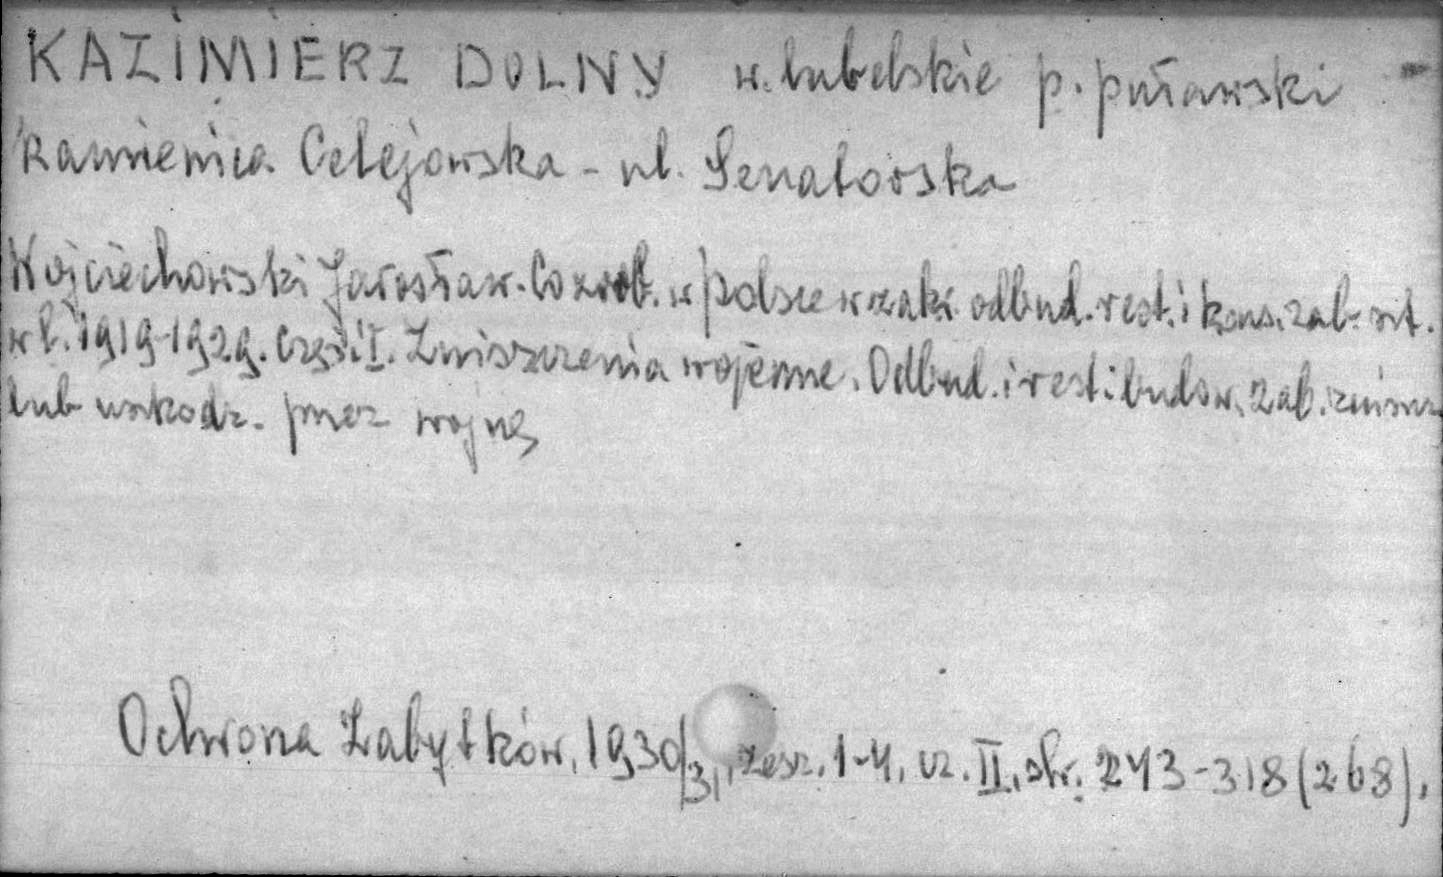 KAZIMIERZ DOLNY w. lubelskie p. puławski
Kamienica Celejowska - ul. Senatorska
Wojciechowski Jarosław. Co zrob. w Polsce w zakr. odbud. rest. i kons. zab. szt.
w l. 1919-1929. Część I. Zniszczenia wojenne. Odbud. i rest. budow. zab. zniszcz
lub uszkodz. przez wojnę
Ochrona Zabytków, 1930/31, zesz. 1-4, cz. II, str. 243-318 (268),